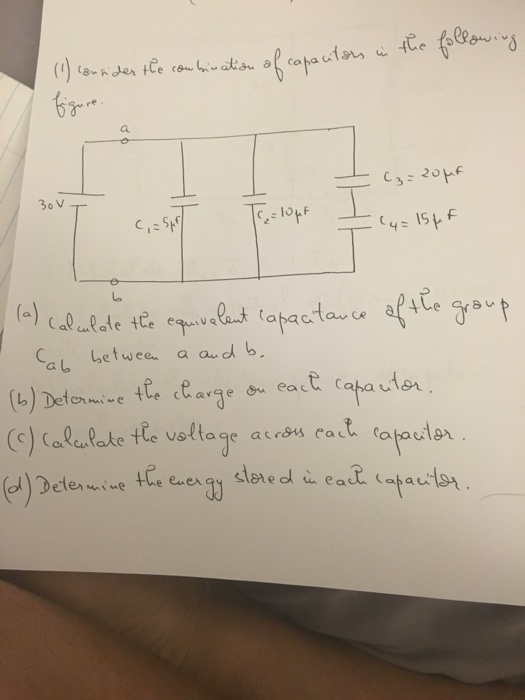 (1) Consider the combination of capacitors in the following
figure.
a
30V
C₁=5μF
C₂=10μF
C₃=20μF
C₄=15μF
b
(a) Calculate the equivalent capacitance of the group
Cab between a and b.
(b) Determine the charge on each capacitor.
(c) Calculate the voltage across each capacitor.
(d) Determine the energy stored in each capacitor.